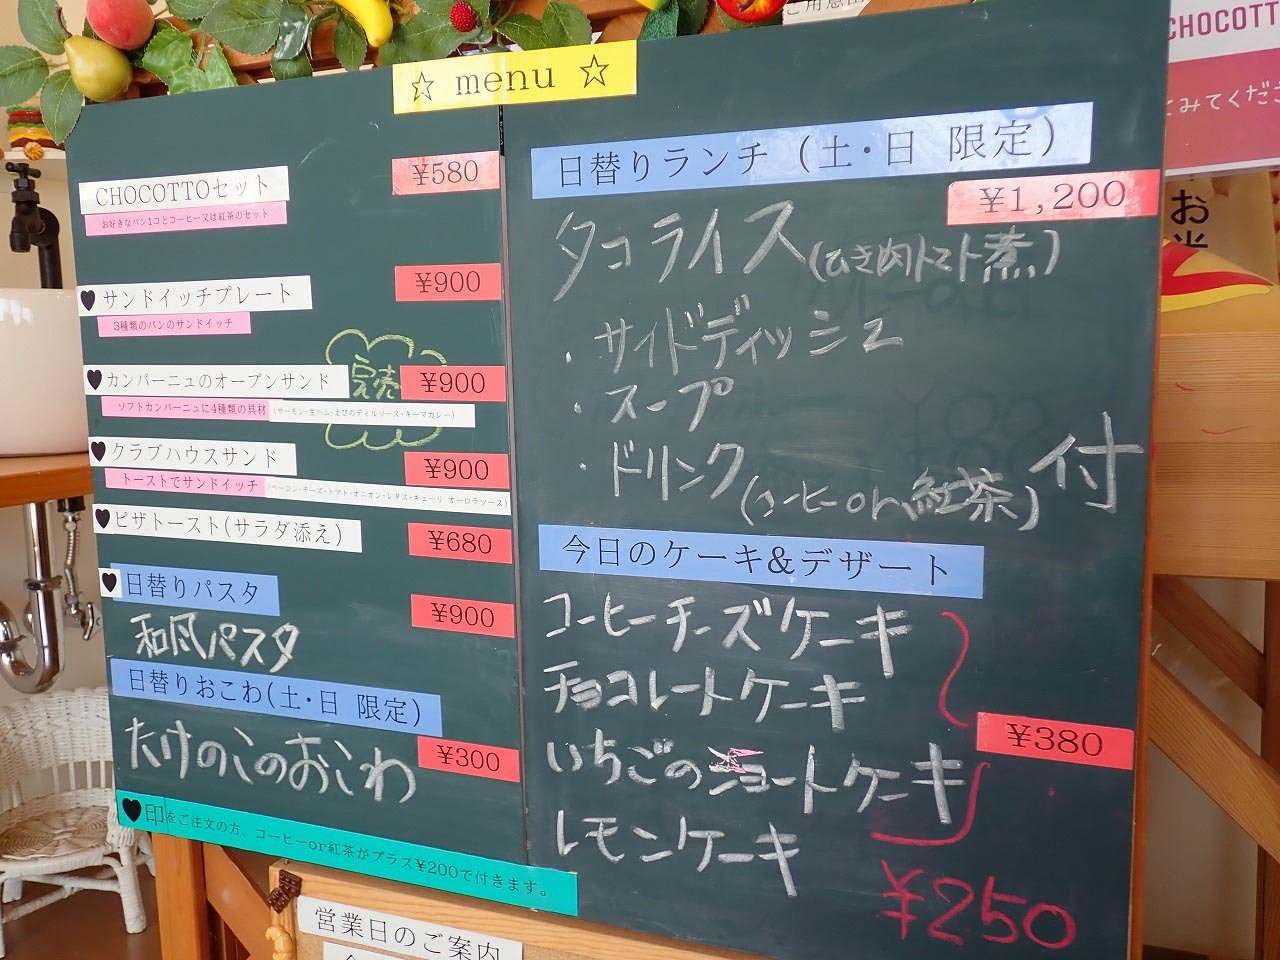 ☆ menu ☆
CHOCOTTOセット ¥580
お好きなパン1コとコーヒー又は紅茶のセット
♥サンドイッチプレート ¥900
3種類のパンのサンドイッチ
完売
♥カンパーニュのオープンサンド ¥900
ソフトカンパーニュに4種類の具材(サーモン・生ハム・えびのディルソース・キーマカレー)
♥クラブハウスサンド ¥900
トーストでサンドイッチ(ベーコン・チーズ・トマト・オニオン・レタス・キューリ オーロラソース)
♥ピザトースト(サラダ添え) ¥680
♥日替りパスタ ¥900
和風パスタ
日替りおこわ(土・日 限定)
たけのこのおこわ ¥300
♥印をご注文の方、コーヒーor紅茶がプラス¥200で付きます。
日替りランチ (土・日 限定)
¥1,200
タコライス(ひき肉トマト煮)
・サイドディッシュ
・スープ
・ドリンク(コーヒーor紅茶)付
今日のケーキ&デザート
コーヒーチーズケーキ
チョコレートケーキ
¥380
いちごのショートケーキ
レモンケーキ
¥250
営業日のご案内
CHOCOTT
てみてくださ
お米